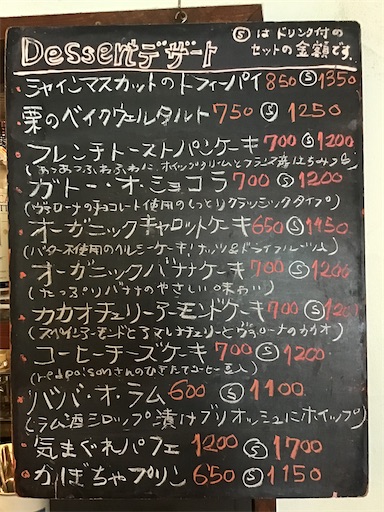 Dessert デザート
Ⓢは ドリンク付の
セットの金額です。
シャインマスカットのトフィーパイ 850 Ⓢ 1350
栗のベイクウェルタルト 750 Ⓢ 1250
フレンチトーストパンケーキ 700 Ⓢ 1200
(あつあつふわふわに、ホイップクリームとフランス産はちみつを)
ガトー・オ・ショコラ 700 Ⓢ 1200
(ヴァローナのチョコレート使用のしっとりクラッシックタイプ)
オーガニックキャロットケーキ 650 Ⓢ 1150
(バター不使用のヘルシーケーキ!ナッツ&ドライフルーツ入)
オーガニックバナナケーキ 700 Ⓢ 1200
(たっぷりバナナのやさしい味わい)
カカオチェリーアーモンドケーキ 700 Ⓢ 1200
(スペインアーモンドとアマレナチェリーとヴァローナのカカオ)
コーヒーチーズケーキ 700 Ⓢ 1200
(redpoisonさんのひきたてコーヒー豆入)
ババ・オ・ラム 600 Ⓢ 1100
(ラム酒シロップ漬けブリオッシュにホイップ)
気まぐれパフェ 1200 Ⓢ 1700
かぼちゃプリン 650 Ⓢ 1150